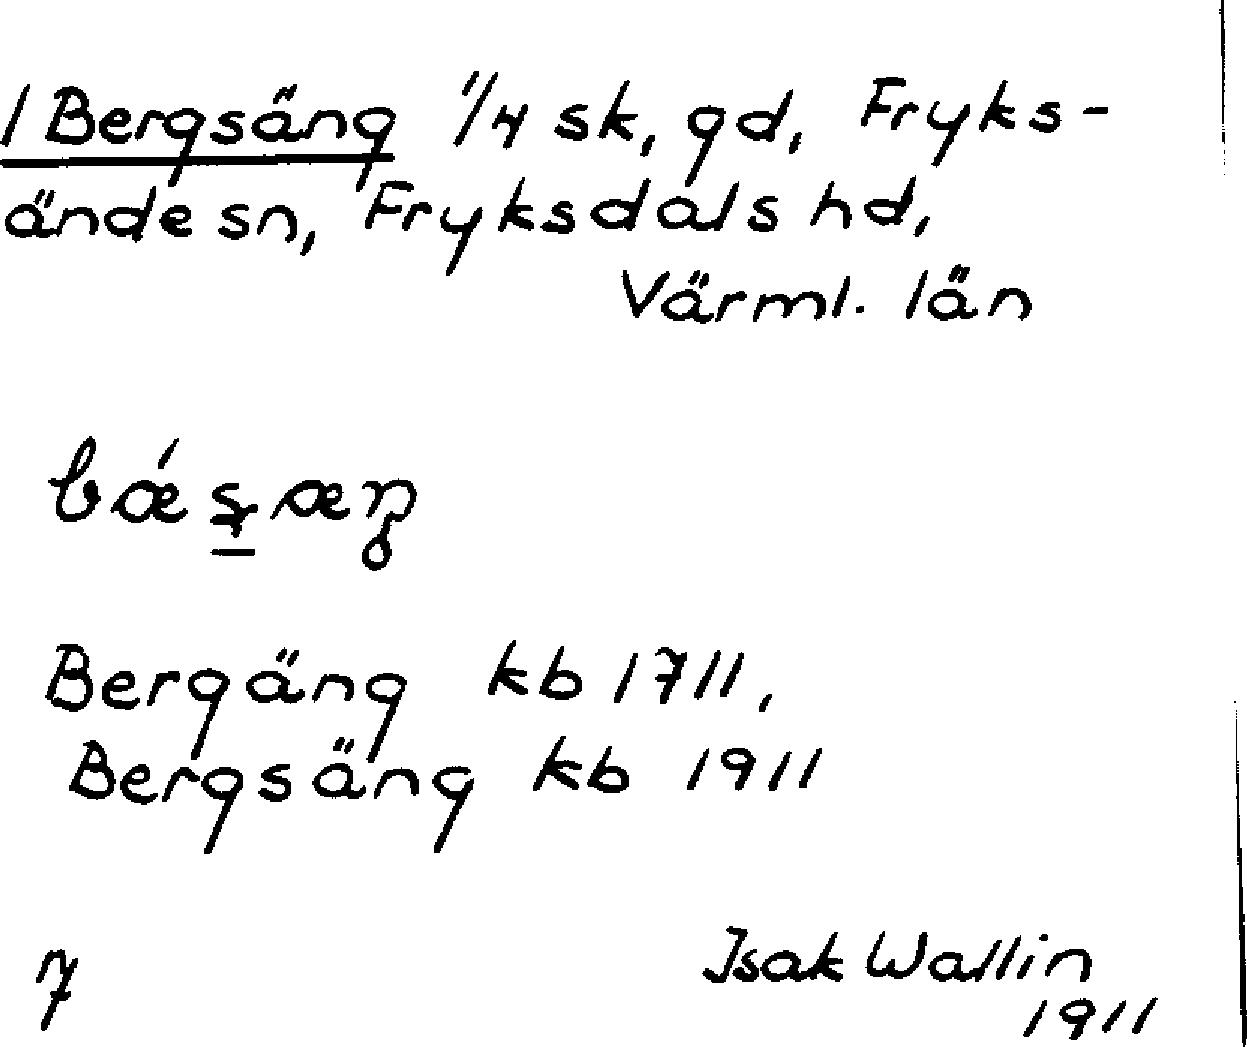 1 Bergsäng 1/4 sk, gd, Fryks-
ände sn, Fryksdals hd,
Värml. län
bǽʂæŋ
Bergäng kb 1711,
Bergsäng kb 1911
7
Isak Wallin
1911